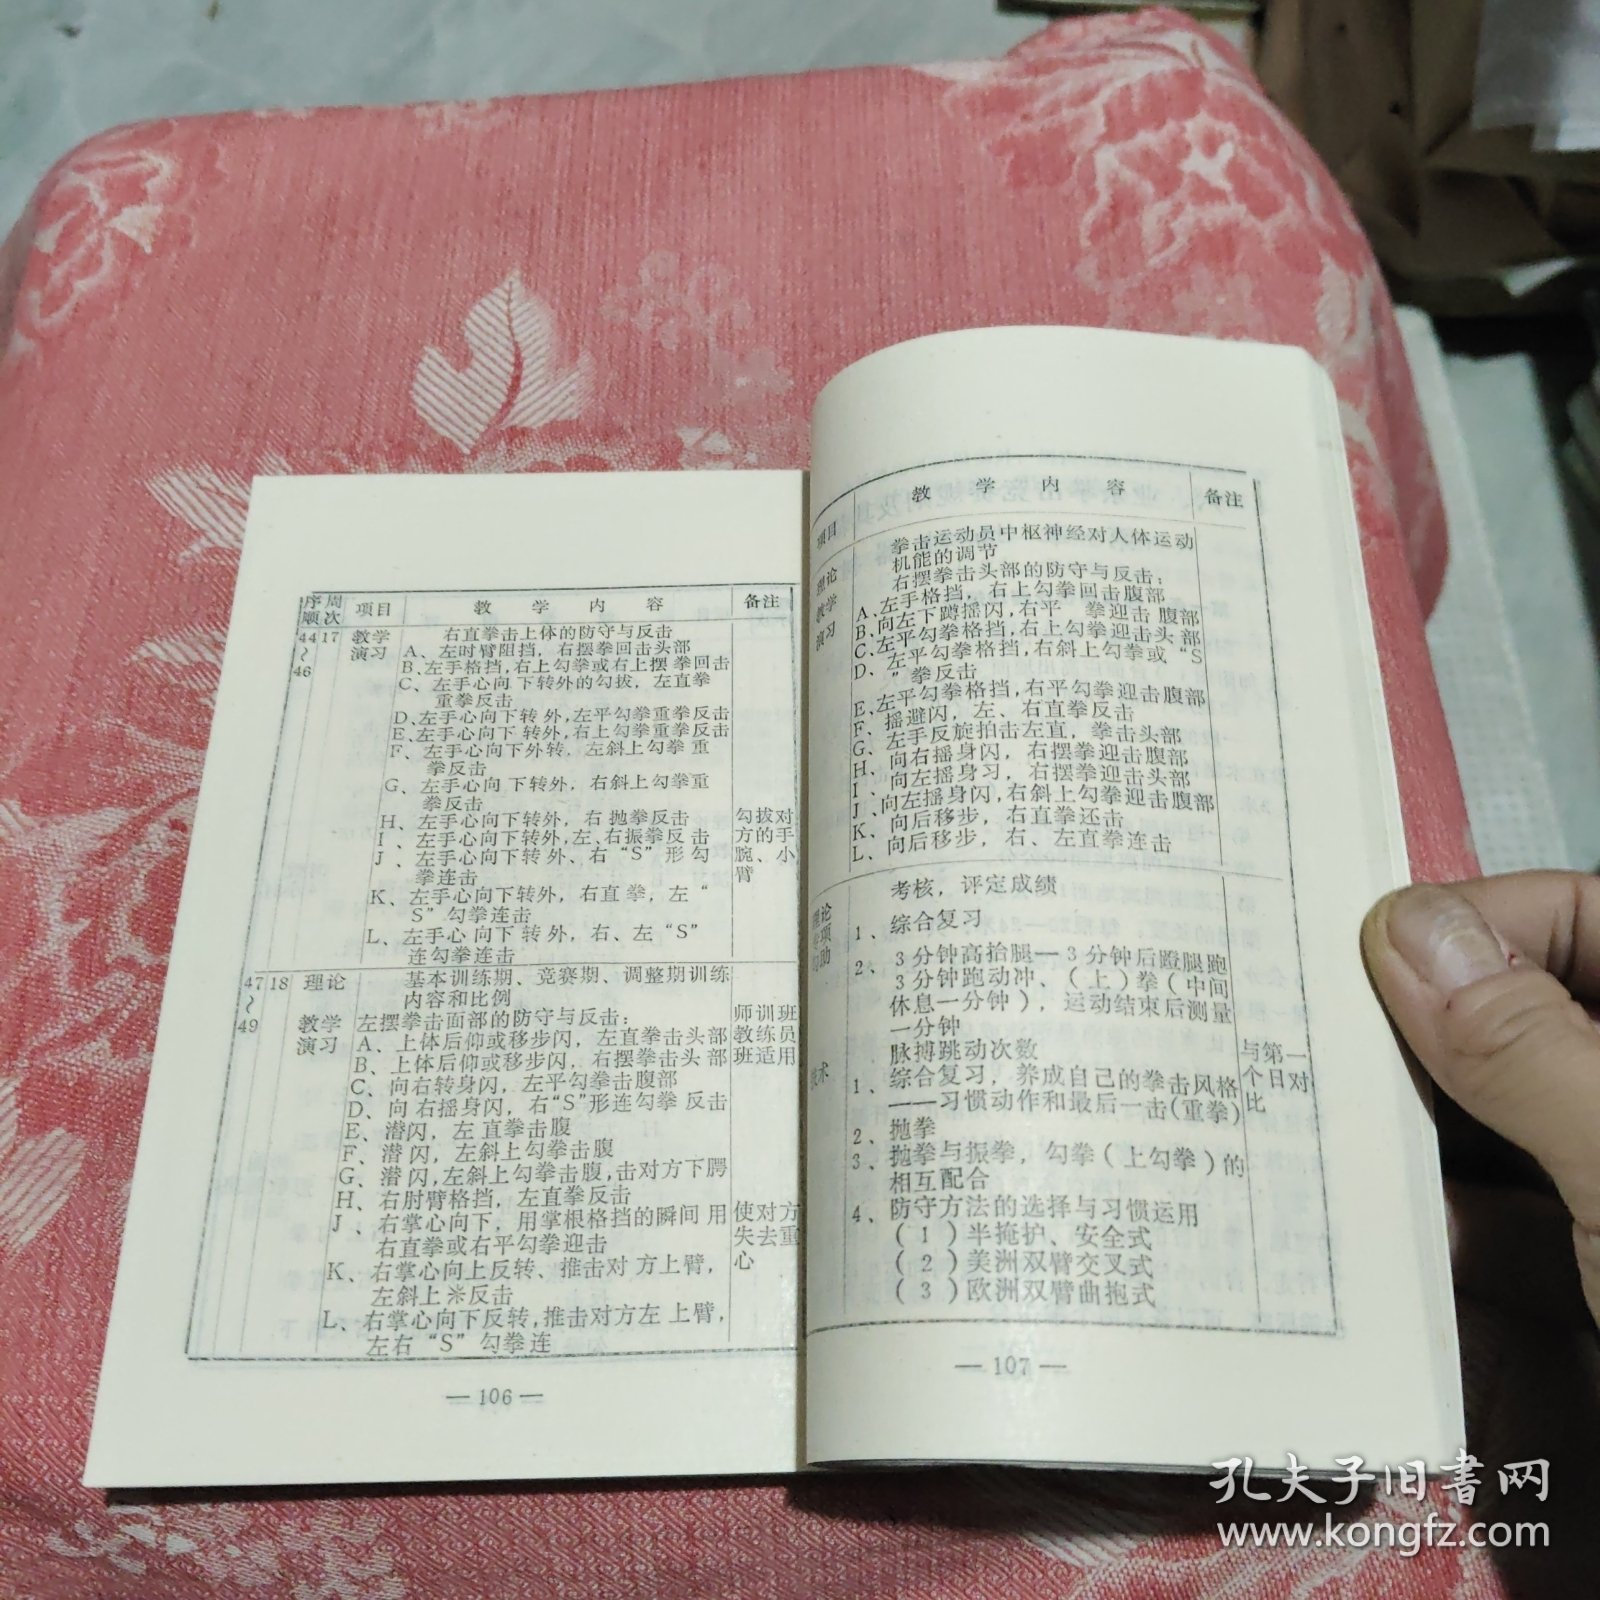 序顺 周次 项目 教 学 内 容 备注
44～46 17 教学演习 右直拳击上体的防守与反击
A、左时臂阻挡，右摆拳回击头部
B、左手格挡，右上勾拳或右上摆拳回击
C、左手心向下转外的勾拔，左直拳
重拳反击
D、左手心向下转外，左平勾拳重拳反击
E、左手心向下转外，右上勾拳重拳反击
F、左手心向下外转，左斜上勾拳重
拳反击
G、左手心向下转外，右斜上勾拳重
拳反击
H、左手心向下转外，右抛拳反击 勾拔对
I、左手心向下转外，左、右振拳反击 方的手
J、左手心向下转外、右“S”形勾 腕、小
拳连击 臂
K、左手心向下转外，右直拳，左“
S”勾拳连击
L、左手心向下转外，右、左“S”
连勾拳连击
47～49 18 理论 基本训练期、竞赛期、调整期训练
内容和比例 师训班
教学演习 左摆拳击面部的防守与反击： 教练员
A、上体后仰或移步闪，左直拳击头部 班适用
B、上体后仰或移步闪，右摆拳击头部
C、向右转身闪，左平勾拳击腹部
D、向右摇身闪，右“S”形连勾拳反击
E、潜闪，左直拳击腹
F、潜闪，左斜上勾拳击腹
G、潜闪，左斜上勾拳击腹，击对方下腭
H、右肘臂格挡，左直拳反击
J、右掌心向下，用掌根格挡的瞬间用 使对方
右直拳或右平勾拳迎击 失去重
K、右掌心向上反转、推击对方上臂， 心
左斜上※反击
L、右掌心向下反转，推击对方左上臂，
左右“S”勾拳连
— 106 —
项目 教 学 内 容 备注
理论 拳击运动员中枢神经对人体运动
机能的调节
教学演习 右摆拳击头部的防守与反击：
A、左手格挡，右上勾拳回击腹部
B、向左下蹲摇闪，右平 拳迎击腹部
C、左平勾拳格挡，右上勾拳迎击头部
D、左平勾拳格挡，右斜上勾拳或“S
”拳反击
E、左平勾拳格挡，右平勾拳迎击腹部
F、摇避闪，左、右直拳反击
G、左手反旋拍击左直，拳击头部
H、向右摇身闪，右摆拳迎击腹部
I、向左摇身习，右摆拳迎击头部
J、向左摇身闪，右斜上勾拳迎击腹部
K、向后移步，右直拳还击
L、向后移步，右、左直拳连击
考核，评定成绩
论 1、综合复习
项 2、3分钟高抬腿—3分钟后蹬腿跑
助 3分钟跑动冲、（上）拳（中间
休息一分钟），运动结束后测量
一分钟
脉搏跳动次数 与第一
术 1、综合复习，养成自己的拳击风格 个日对
——习惯动作和最后一击（重拳） 比
2、抛拳
3、抛拳与振拳，勾拳（上勾拳）的
相互配合
4、防守方法的选择与习惯运用
（1）半掩护、安全式
（2）美洲双臂交叉式
（3）欧洲双臂曲抱式
— 107 —
孔夫子旧书网
www.kongfz.com